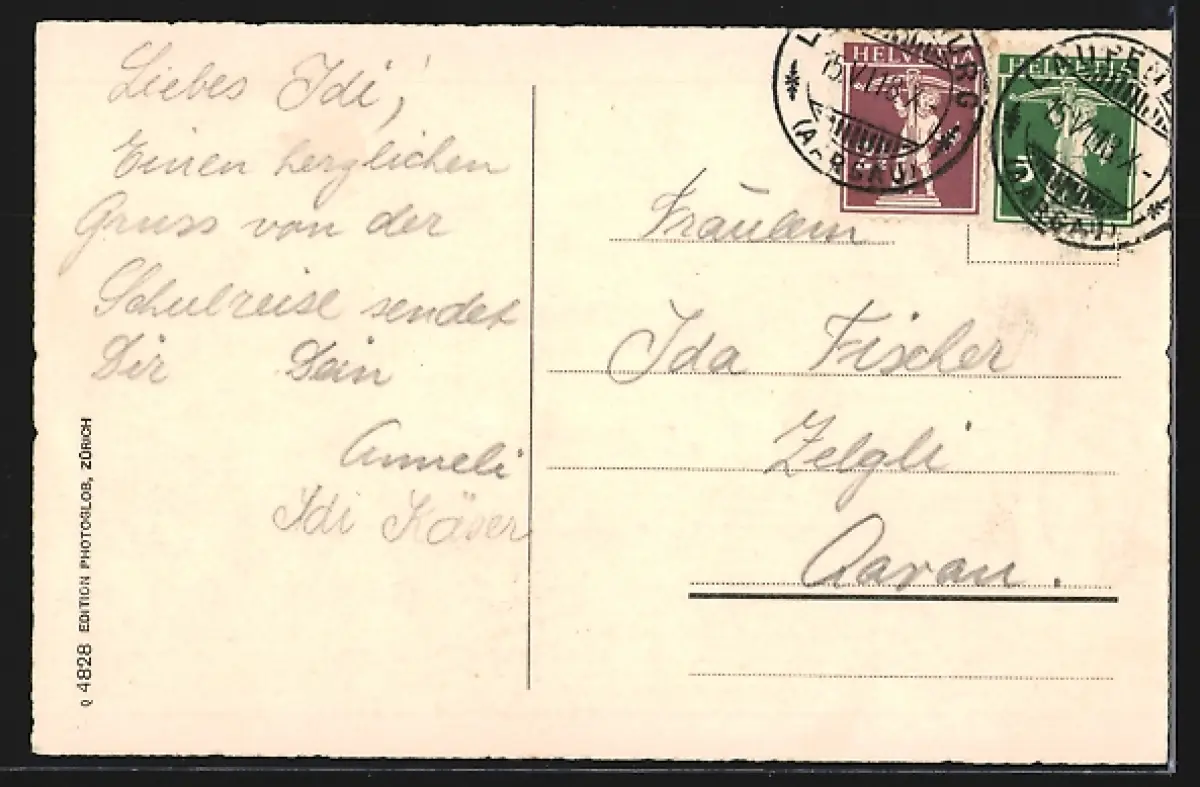 Liebes Idi!
Einen herzlichen
Gruss von der
Schulreise sendet
Dir Dein
Anneli
Idi Käser
Q 4828 EDITION PHOTOGLOB, ZÜRICH
HELVETIA
HELVETIA
5
(AARGAU)
(AARGAU)
Fräulein
Ida Fischer
Zelgli
Aarau.